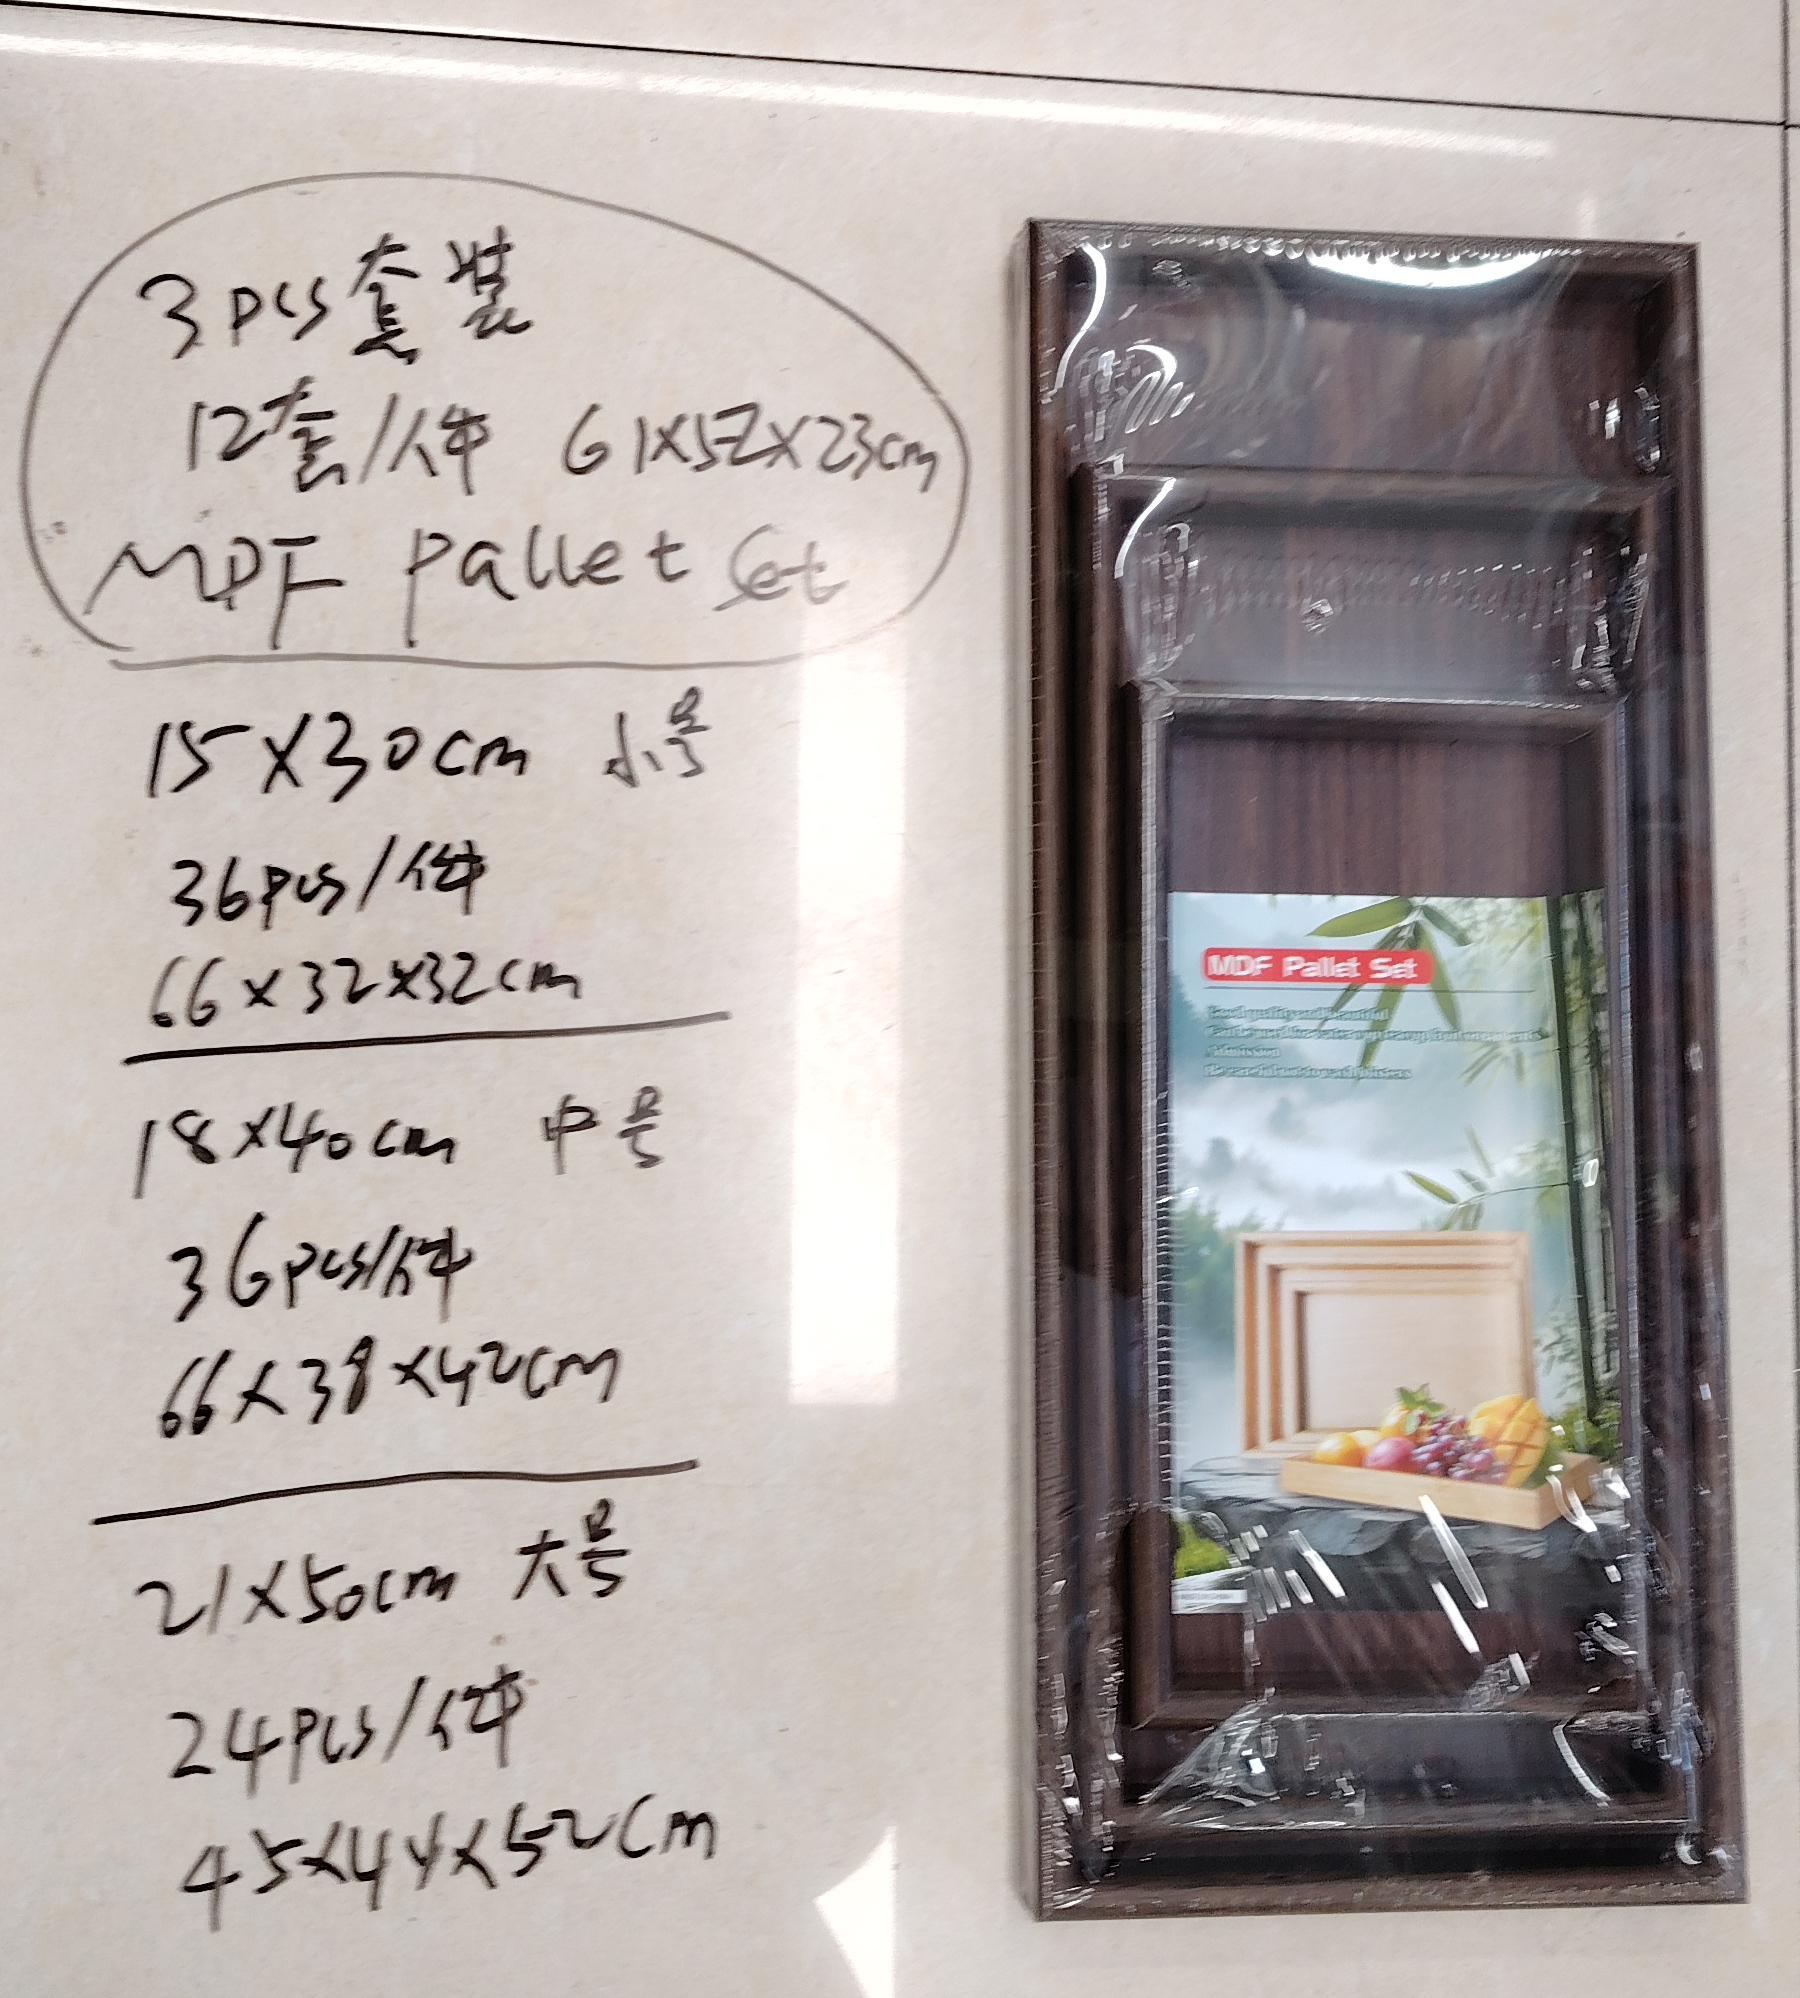 3pcs套装
12套/件 61x52x23cm
MDF Pallet Set
15x30cm 小号
36pcs/件
66x32x32cm
18x40cm 中号
36pcs/件
66x38x42cm
21x50cm 大号
24pcs/件
45x44x52cm
MDF Pallet Set